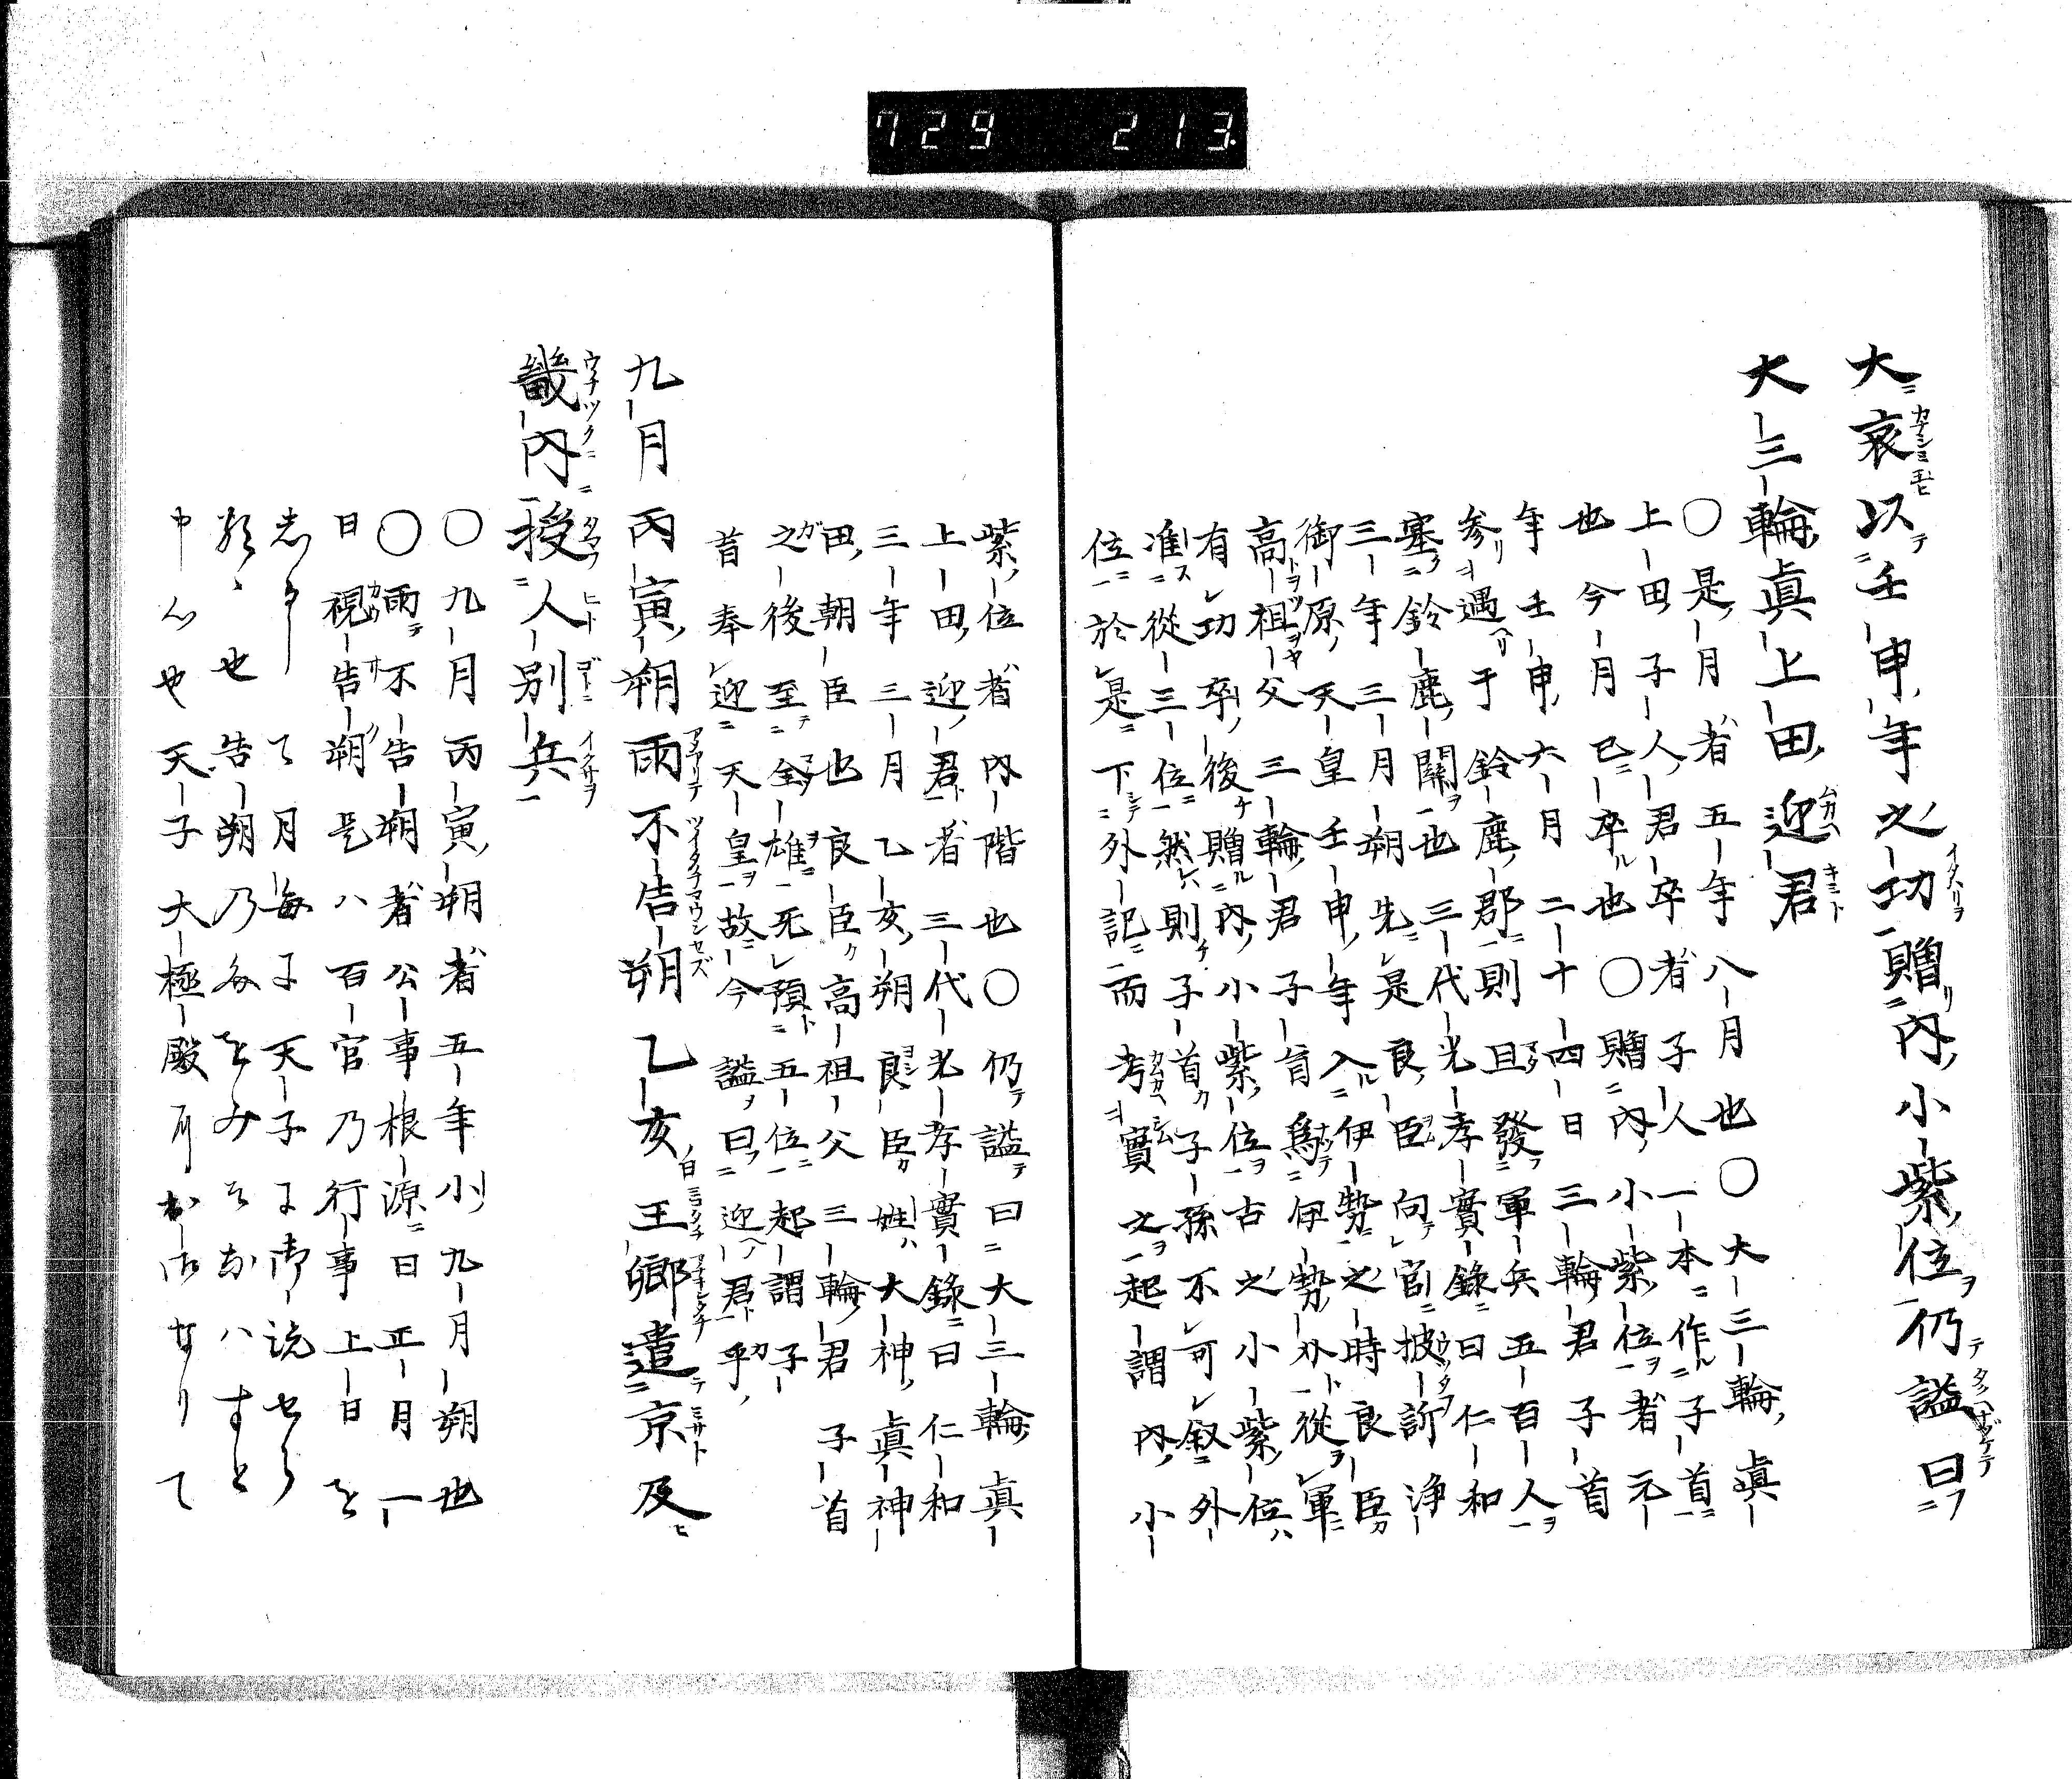 729 213
大哀以壬申年之功贈内小紫位仍謚曰
大三輪真上田迎君
〇是月者五年八月也〇大三輪真
上田子人君卒者子人一本作子首
也今月已卒也〇贈内小紫位者元
年壬申六月二十四日三輪君子首
参遇于鈴鹿郡則且發軍兵五百人
塞鈴鹿關也三代光孝實錄曰仁和
三年三月朔先是良臣向官披訴浄
御原天皇壬申年入伊勢之時良臣
高祖父三輪君子首為伊勢介從軍
有功卒後贈内小紫位古之小紫位
准從三位然則子首子孫不可叙外
位於是下外記而考實之起謂内小
紫位者内階也〇仍謚曰大三輪真
上田迎君者三代光孝實錄曰仁和
三年三月乙亥朔良臣姓大神真神
田朝臣也良臣高祖父三輪君子首
之後至全雄死預五位起謂子
首奉迎天皇故今謚曰迎君乎
九月丙寅朔雨不告朔乙亥王卿遣京及
畿内授人別兵
〇九月丙寅朔者五年小九月朔也
〇雨不告朔者公事根源曰正月一
日視告朔是ハ百官乃行事上日を
志て月毎に天子に御読せら
也告朔乃文をみそなハすと
中心也天子大極殿行なりて